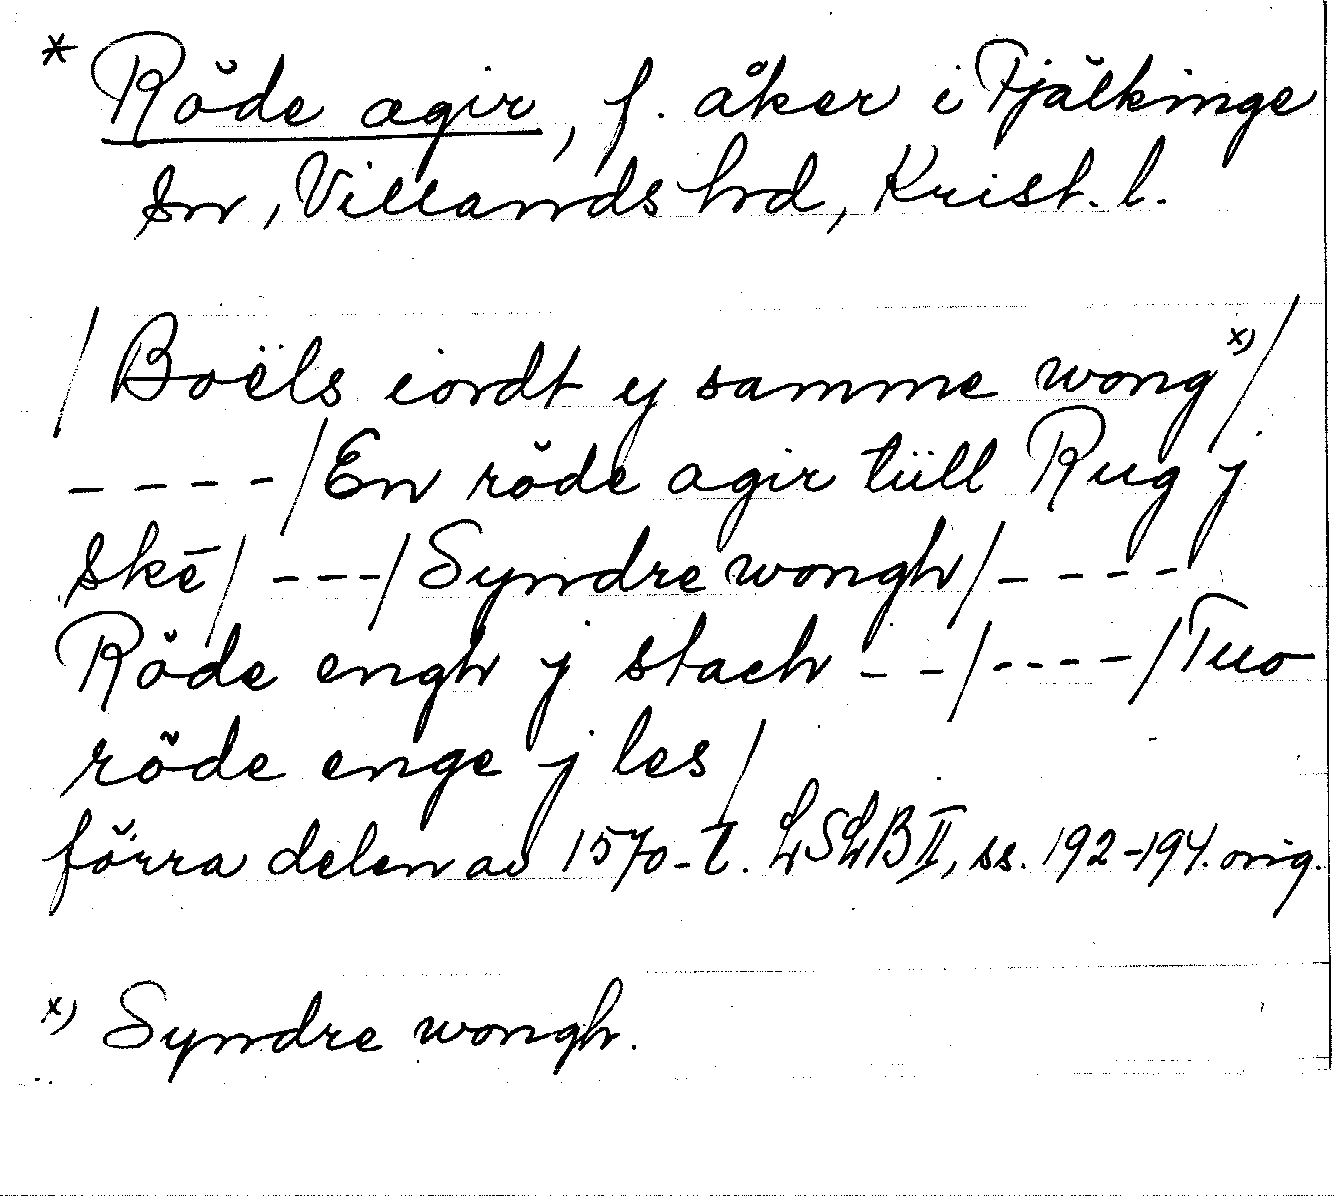 * Röde agir, f. åker i Fjälkinge
sn, Villands hrd, Krist. l.
/Boëls iordt y samme wong x)/
----/En röde agir tüll Rug j
skē/ ---/Syndre wongh/----
Röde engh j stach --/----/Tuo
röde enge j les/
förra delen av 1570-t. LSLB II, ss. 192-194. orig.
x) Syndre wongh.